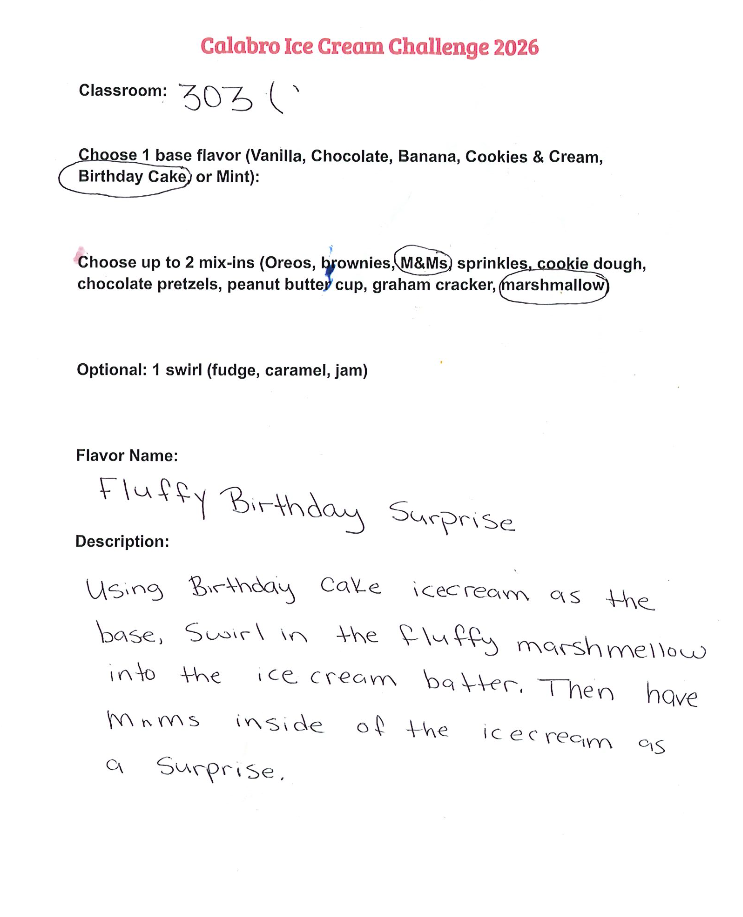 Calabro Ice Cream Challenge 2026
Classroom: 303 (
Choose 1 base flavor (Vanilla, Chocolate, Banana, Cookies & Cream,
Birthday Cake, or Mint):
Choose up to 2 mix-ins (Oreos, brownies, M&Ms, sprinkles, cookie dough,
chocolate pretzels, peanut butter cup, graham cracker, marshmallow)
Optional: 1 swirl (fudge, caramel, jam)
Flavor Name:
Fluffy Birthday Surprise
Description:
Using Birthday Cake icecream as the
base, Swirl in the fluffy marshmellow
into the ice cream batter. Then have
mnms inside of the icecream as
a Surprise.